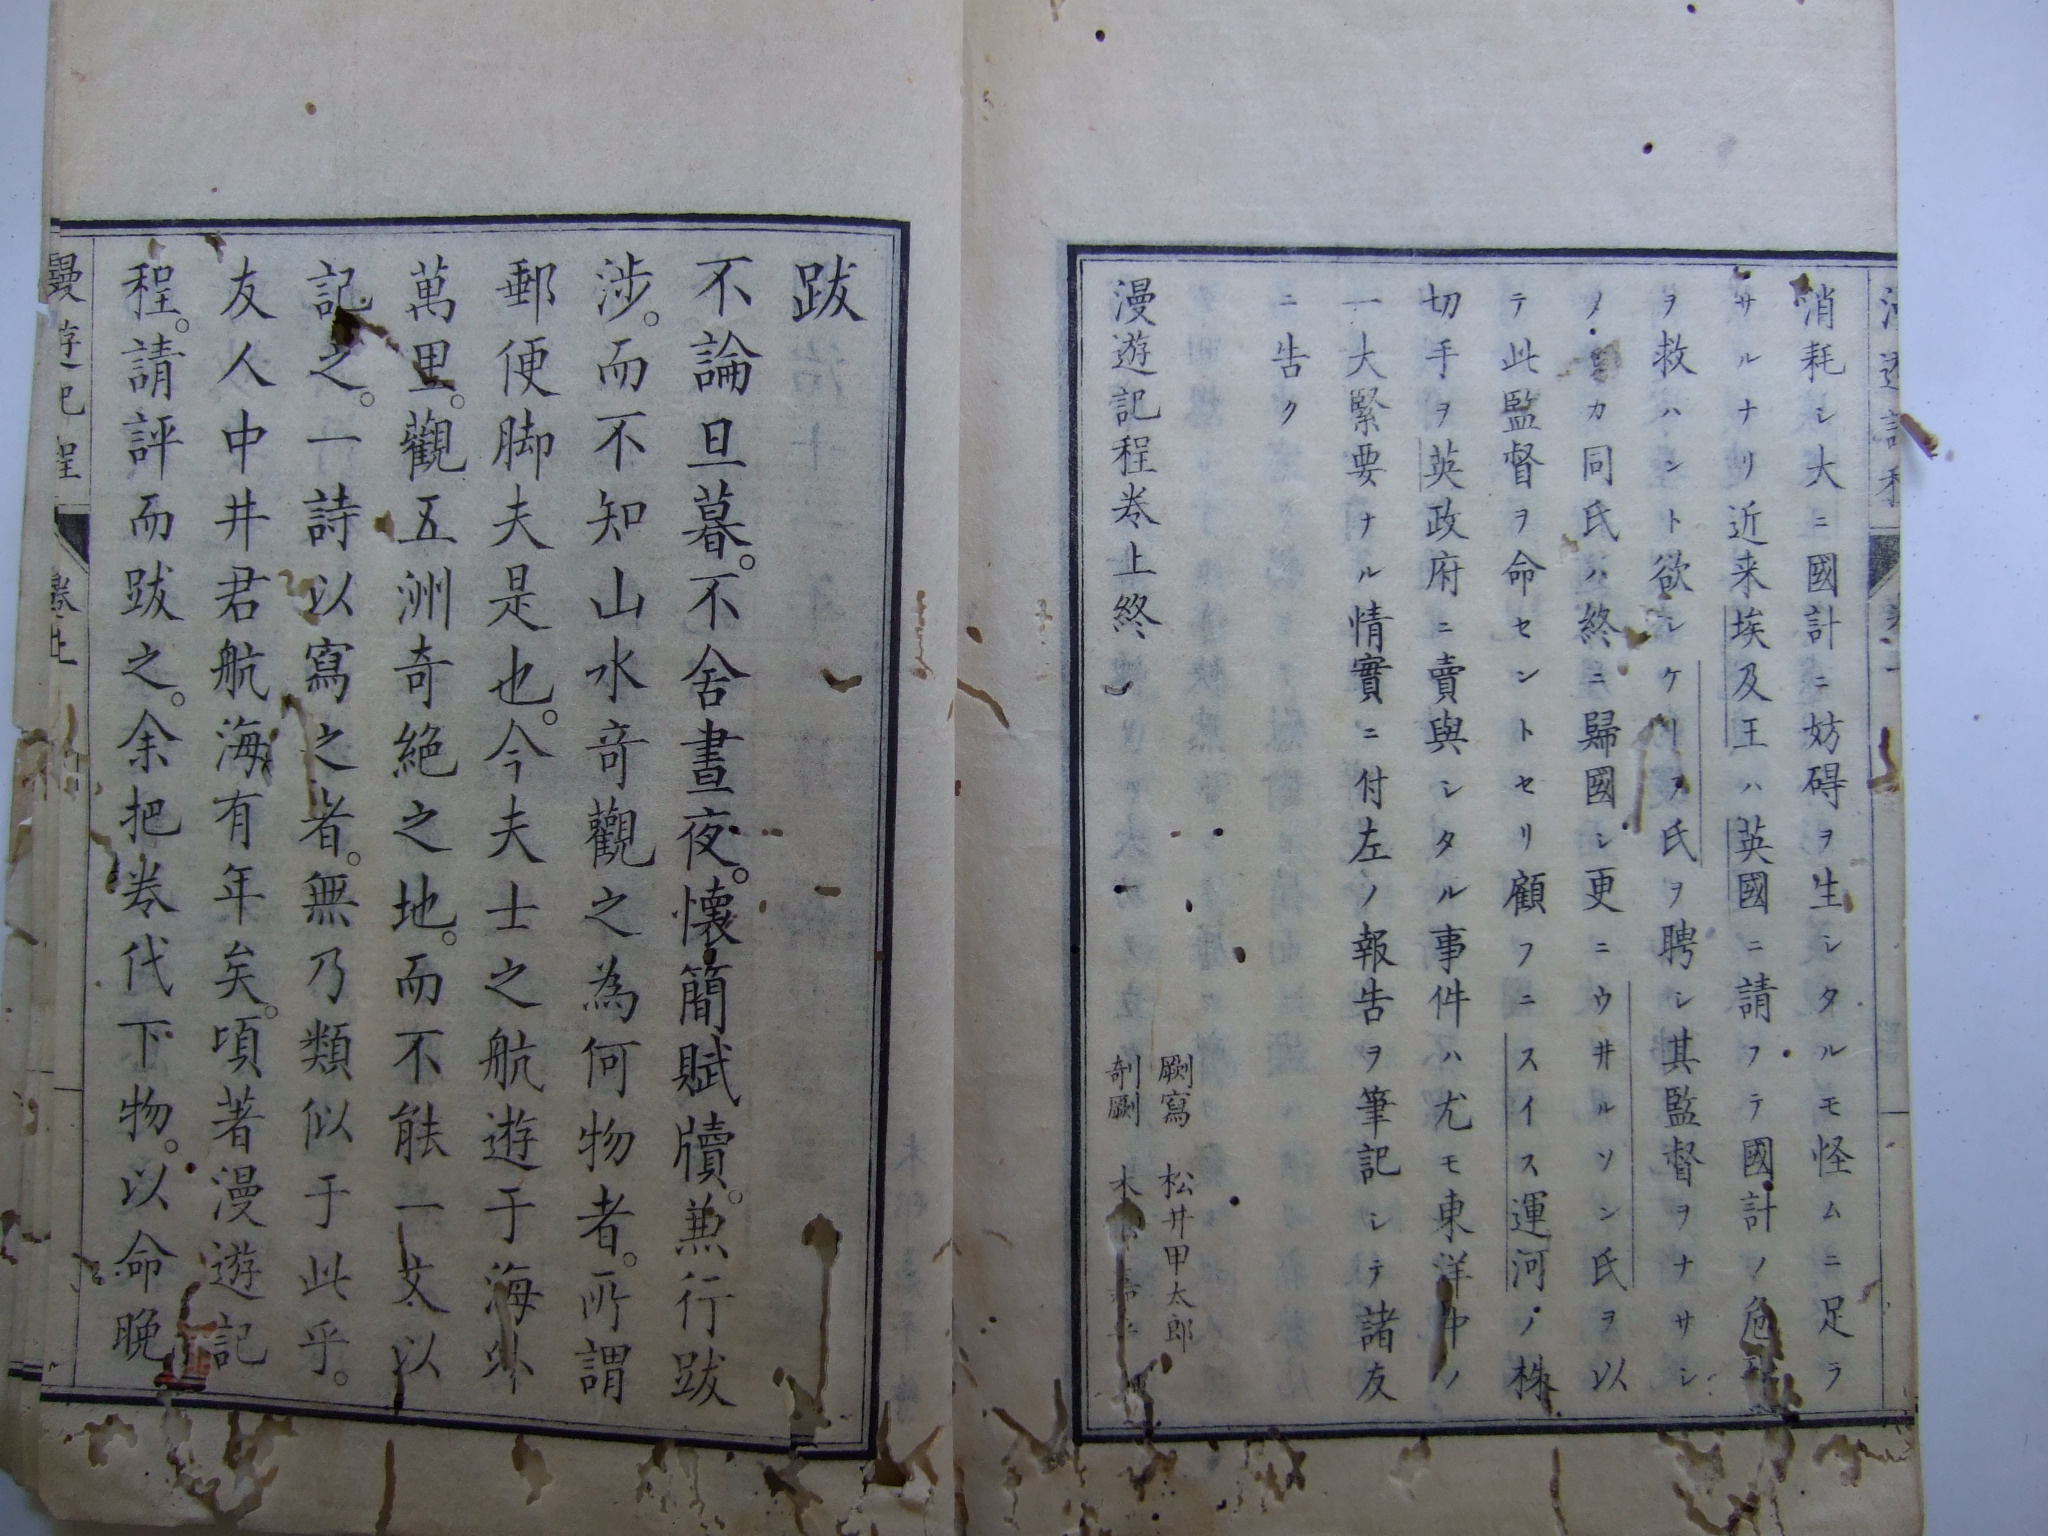 消耗シ大ニ國計ニ妨碍ヲ生シタルモ怪ムニ足ラ
サルナリ近来埃及王ハ英國ニ請フテ國計ノ危
ヲ救ハント欲シケリヲ氏ヲ聘シ其監督ヲナサシ
カ同氏ハ終ニ歸國シ更ニウ井ルソン氏ヲ以
テ此監督ヲ命セントセリ顧フニスイス運河ノ株
切手ヲ英政府ニ賣與シタル事件ハ尤モ東洋中ノ
一大緊要ナル情實ニ付左ノ報告ヲ筆記シテ諸友
ニ告ク
漫遊記程卷上終
劂寫 松井甲太郎
剞劂 木
跋
不論旦暮。不舍晝夜。懷簡賦牘。兼行跋
涉。而不知山水奇觀之為何物者。所謂
郵便脚夫是也。今夫士之航遊于海外
萬里。觀五洲奇絕之地。而不能一文以
記之。一詩以寫之者。無乃類似于此乎。
友人中井君航海有年矣。頃著漫遊記
程。請評而跋之。余把卷代下物。以命晚
漫遊記程